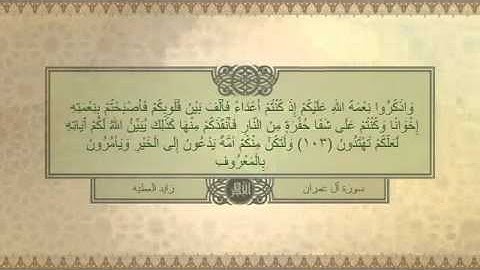 وَاذْكُرُوا نِعْمَةَ اللَّهِ عَلَيْكُمْ إِذْ كُنْتُمْ أَعْدَاءً فَأَلَّفَ بَيْنَ قُلُوبِكُمْ فَأَصْبَحْتُمْ بِنِعْمَتِهِ
إِخْوَانًا وَكُنْتُمْ عَلَى شَفَا حُفْرَةٍ مِنَ النَّارِ فَأَنْقَذَكُمْ مِنْهَا كَذَلِكَ يُبَيِّنُ اللَّهُ لَكُمْ آيَاتِهِ
لَعَلَّكُمْ تَهْتَدُونَ (١٠٣) وَلْتَكُنْ مِنْكُمْ أُمَّةٌ يَدْعُونَ إِلَى الْخَيْرِ وَيَأْمُرُونَ
بِالْمَعْرُوفِ
سورة آل عمران
رايد العطيه